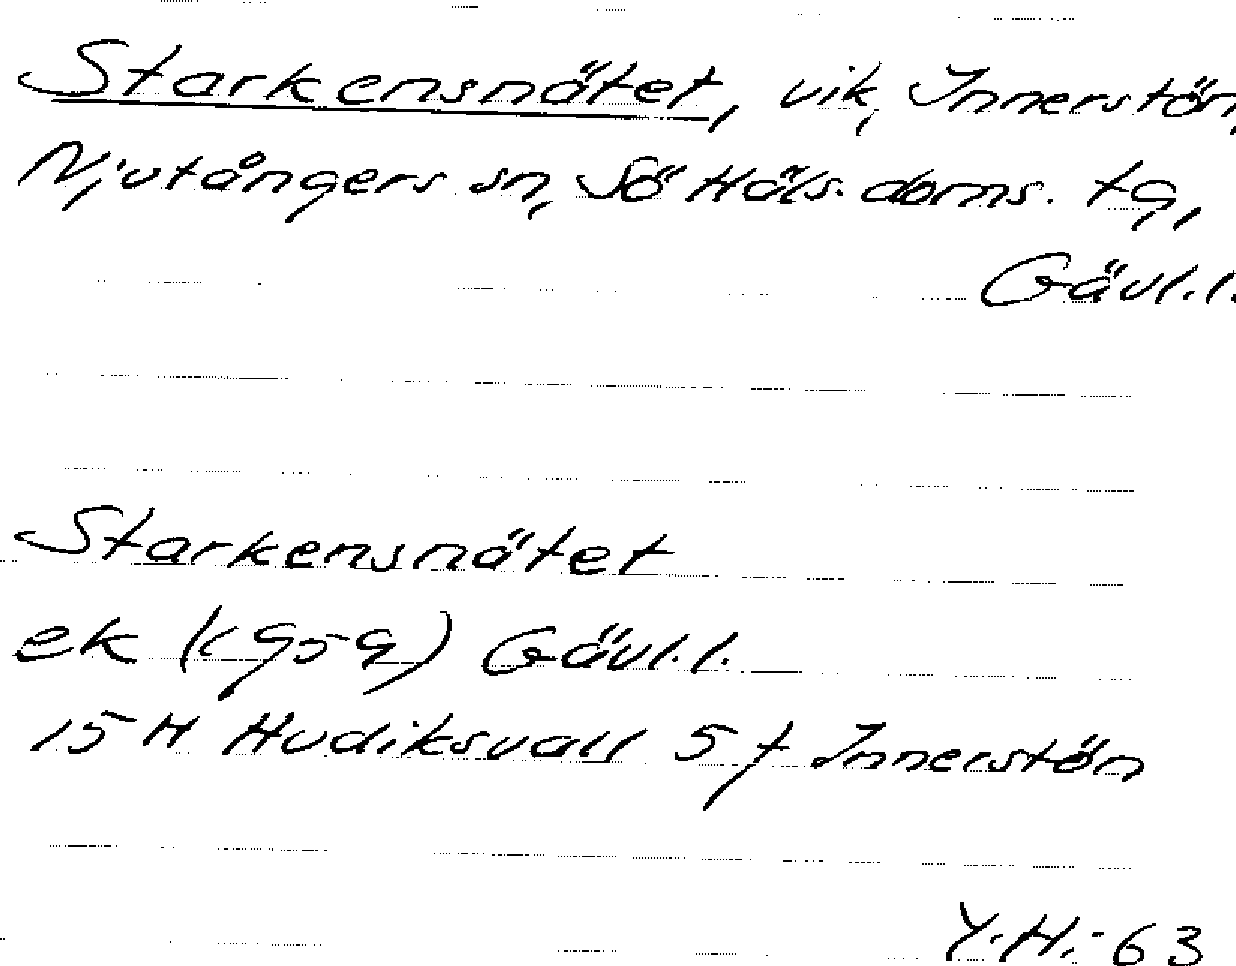 Starkensnätet, vik, Innerstön,
Njutångers sn, Sö Häls. doms. tg,
Gävl.l.
Starkensnätet
ek (k 959) Gävl.l.
15 H Hudiksvall 5 f Innerstön
Y.H.-63